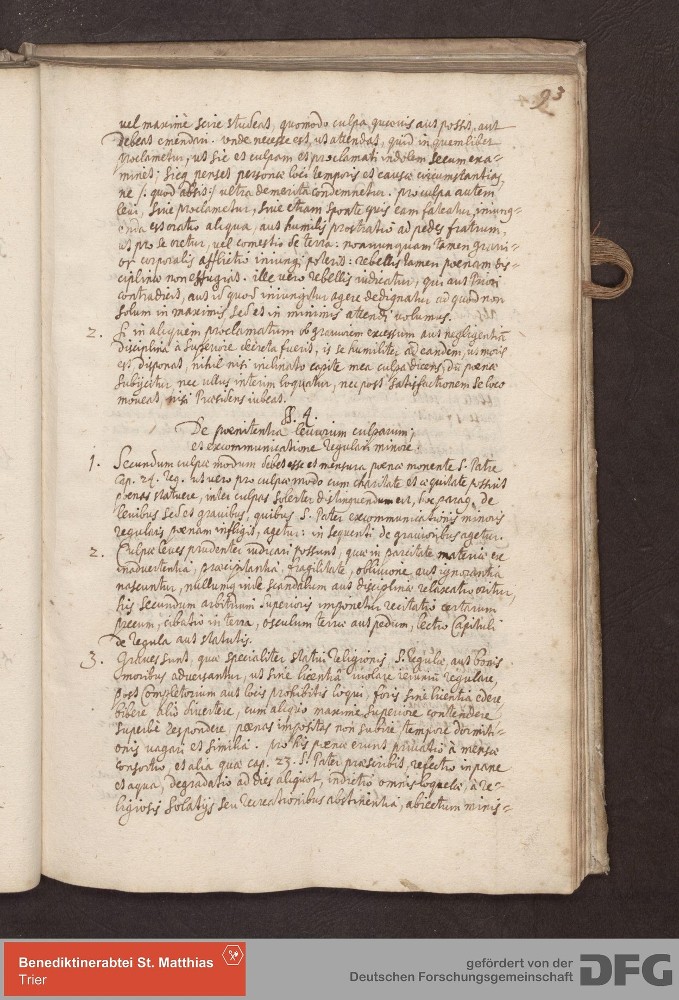 93
vel maximè scire studeat, quomodo culpa quævis aut possit, aut
debeat emendari. unde necesse est, ut attendat, quid in quemlibet
proclametur, ut sic et culpam et proclamati indolem secum exa=
minet; sicq penset personæ loci temporis et causæ circumstantias,
ne /: quod absit :/ ultra demerita condemnetur. pro culpa autem
levi, sive proclametur, sive etiam sponte quis eam fateatur, iniung=
enda est oratio aliqua, aut humilis prostratio ad pedes fratrum,
ut pro se oretur, vel comestio de terra: nonnunquam tamen gravi=
or corporalis afflictio iniungi poterit: rebellis tamen poenam dis=
ciplinæ non effugiat. ille vero rebellis iudicatur, qui aut Priori
contradicit, aut id quod iniungitur agere dedignatur ad quod non
solum in maximis, sed et in minimis attendi volumus.
2. Si in aliquem proclamatum ob graviorem excessum aut negligentiā
disciplina à Superiore decreta fuerit, is se humiliter ad eandem, ut moris
est, disponat, nihil nisi inclinato capite mea culpa dicens, dū poenæ
subijcitur nec ullus interim loquatur, nec post satisfactionem se loco
moveat nisi Præsidens iubeat.
§. 4.
De poenitentia leviorum culparum,
et excommunicatione regulari minore.
1. Secundum culpæ modum debet esse et mensura poenæ monente S. Patre
cap. 24. Reg. ut vero pro culpæ modo cum charitate et æquitate possint
poenas statuere, inter culpas solerter distinguendum est, hoc parag. de
levibus sed et gravibus, quibus S. Pater excommunicationis minoris
regularis poenam infligit, agetur: in sequenti de gravioribus agetur.
2. Culpæ leves prudenter iudicari possunt, quæ in parcitate materiæ ex
inadvertentia, præcipitantia, fragilitate, oblivione aut ignorantia
nascuntur, nullumq inde scandalum aut disciplinæ relaxatio oritur,
his secundum arbitrium Superioris imponetur recitatio certarum
precum, cibatio in terra, osculum terræ aut pedum, lectio Capituli
de regula aut statutis.
3. Graves sunt, quæ specialiter statui religionis, S. Regulæ, aut bonis
moribus adversantur, ut sine licentiâ violare ieiuniū regulare,
post completorium aut locis prohibitis loqui, foris sine licentia edere
bibere alio divertere, cum aliquo maxime Superiore contendere
superbè respondere, poenas impositas non subire, tempore dormiti=
onis vagari et similia. pro his poenæ erunt privatio à mensæ
consortio, et alia quæ cap. 23. S. Pater præscribit, refectio in pane
et aqua, degradatio ad dies aliquot, indictio omnis loquelæ, à re=
ligiosis solatijs seu recreationibus abstinentia, abiectum minis=
Benediktinerabtei St. Matthias
Trier
gefördert von der
Deutschen Forschungsgemeinschaft
DFG